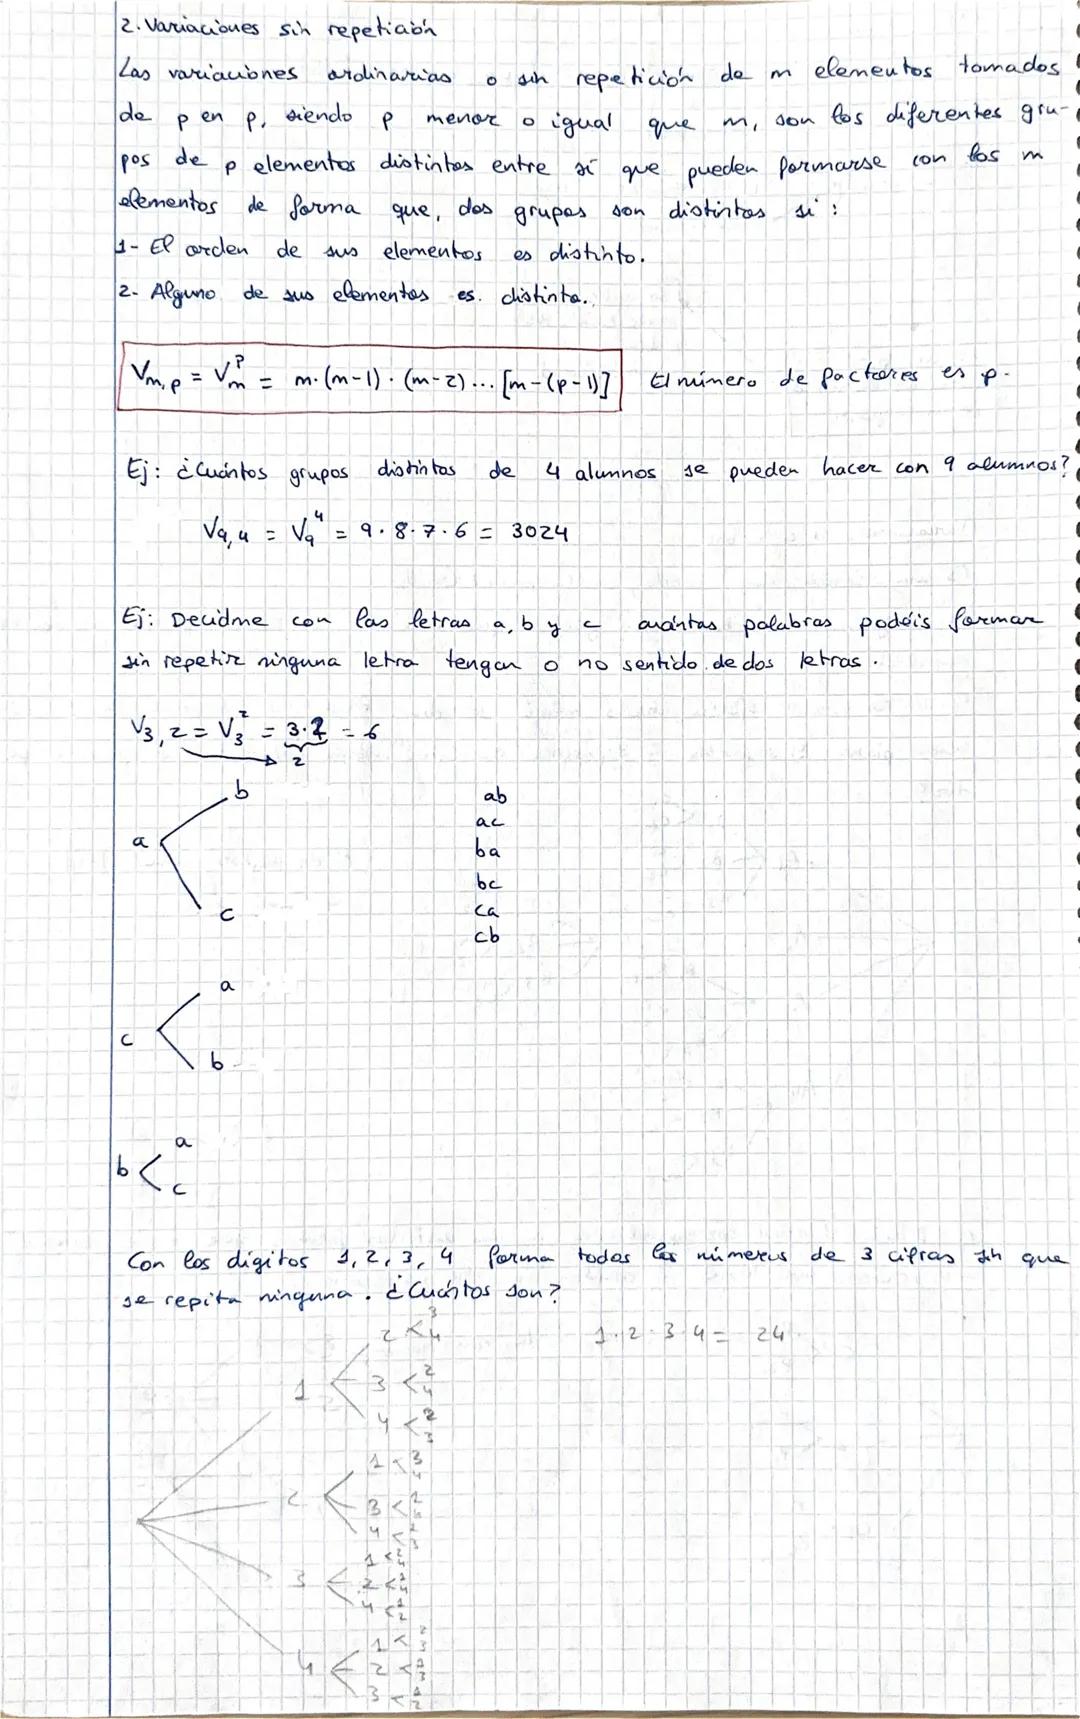 2. Variaciones sin repetición
Las variaciones ordinarias o sin repetición de m elementos tomados
de p en p, siendo p menor o igual que m, son los diferentes gru-
pos de p elementos distintos entre sí que pueden formarse con los m
elementos de forma que, dos grupos son distintos si:
1- El orden de sus elementos es distinto.
2- Alguno de sus elementos es distinto.
Vm,p = Vm^p = m·(m-1)·(m-2)...[m-(p-1)] El número de factores es p.
Ej: ¿Cuántos grupos distintos de 4 alumnos se pueden hacer con 9 alumnos?
V9,4 = V9^4 = 9·8·7·6 = 3024
Ej: Decidme con las letras a, b y c cuántas palabras podéis formar
sin repetir ninguna letra tengan o no sentido de dos letras.
V3,2 = V3^2 = 3·2 = 6
2
b
a
c
ab
ac
ba
bc
ca
cb
a
c
b
a
b <
c
Con los dígitos 1, 2, 3, 4 forma todos los números de 3 cifras sin que
se repita ninguna. ¿Cuántos son?
1·2·3·4= 24
2 < 3 4
1 < 3 < 2 4
4 < 2 3
1 < 3 4
2 < 3 <
4 <
1 <
3 < 2 <
4 < 1 2
1 < 2 3
4 < 2 < 1 3
3 < 1 2